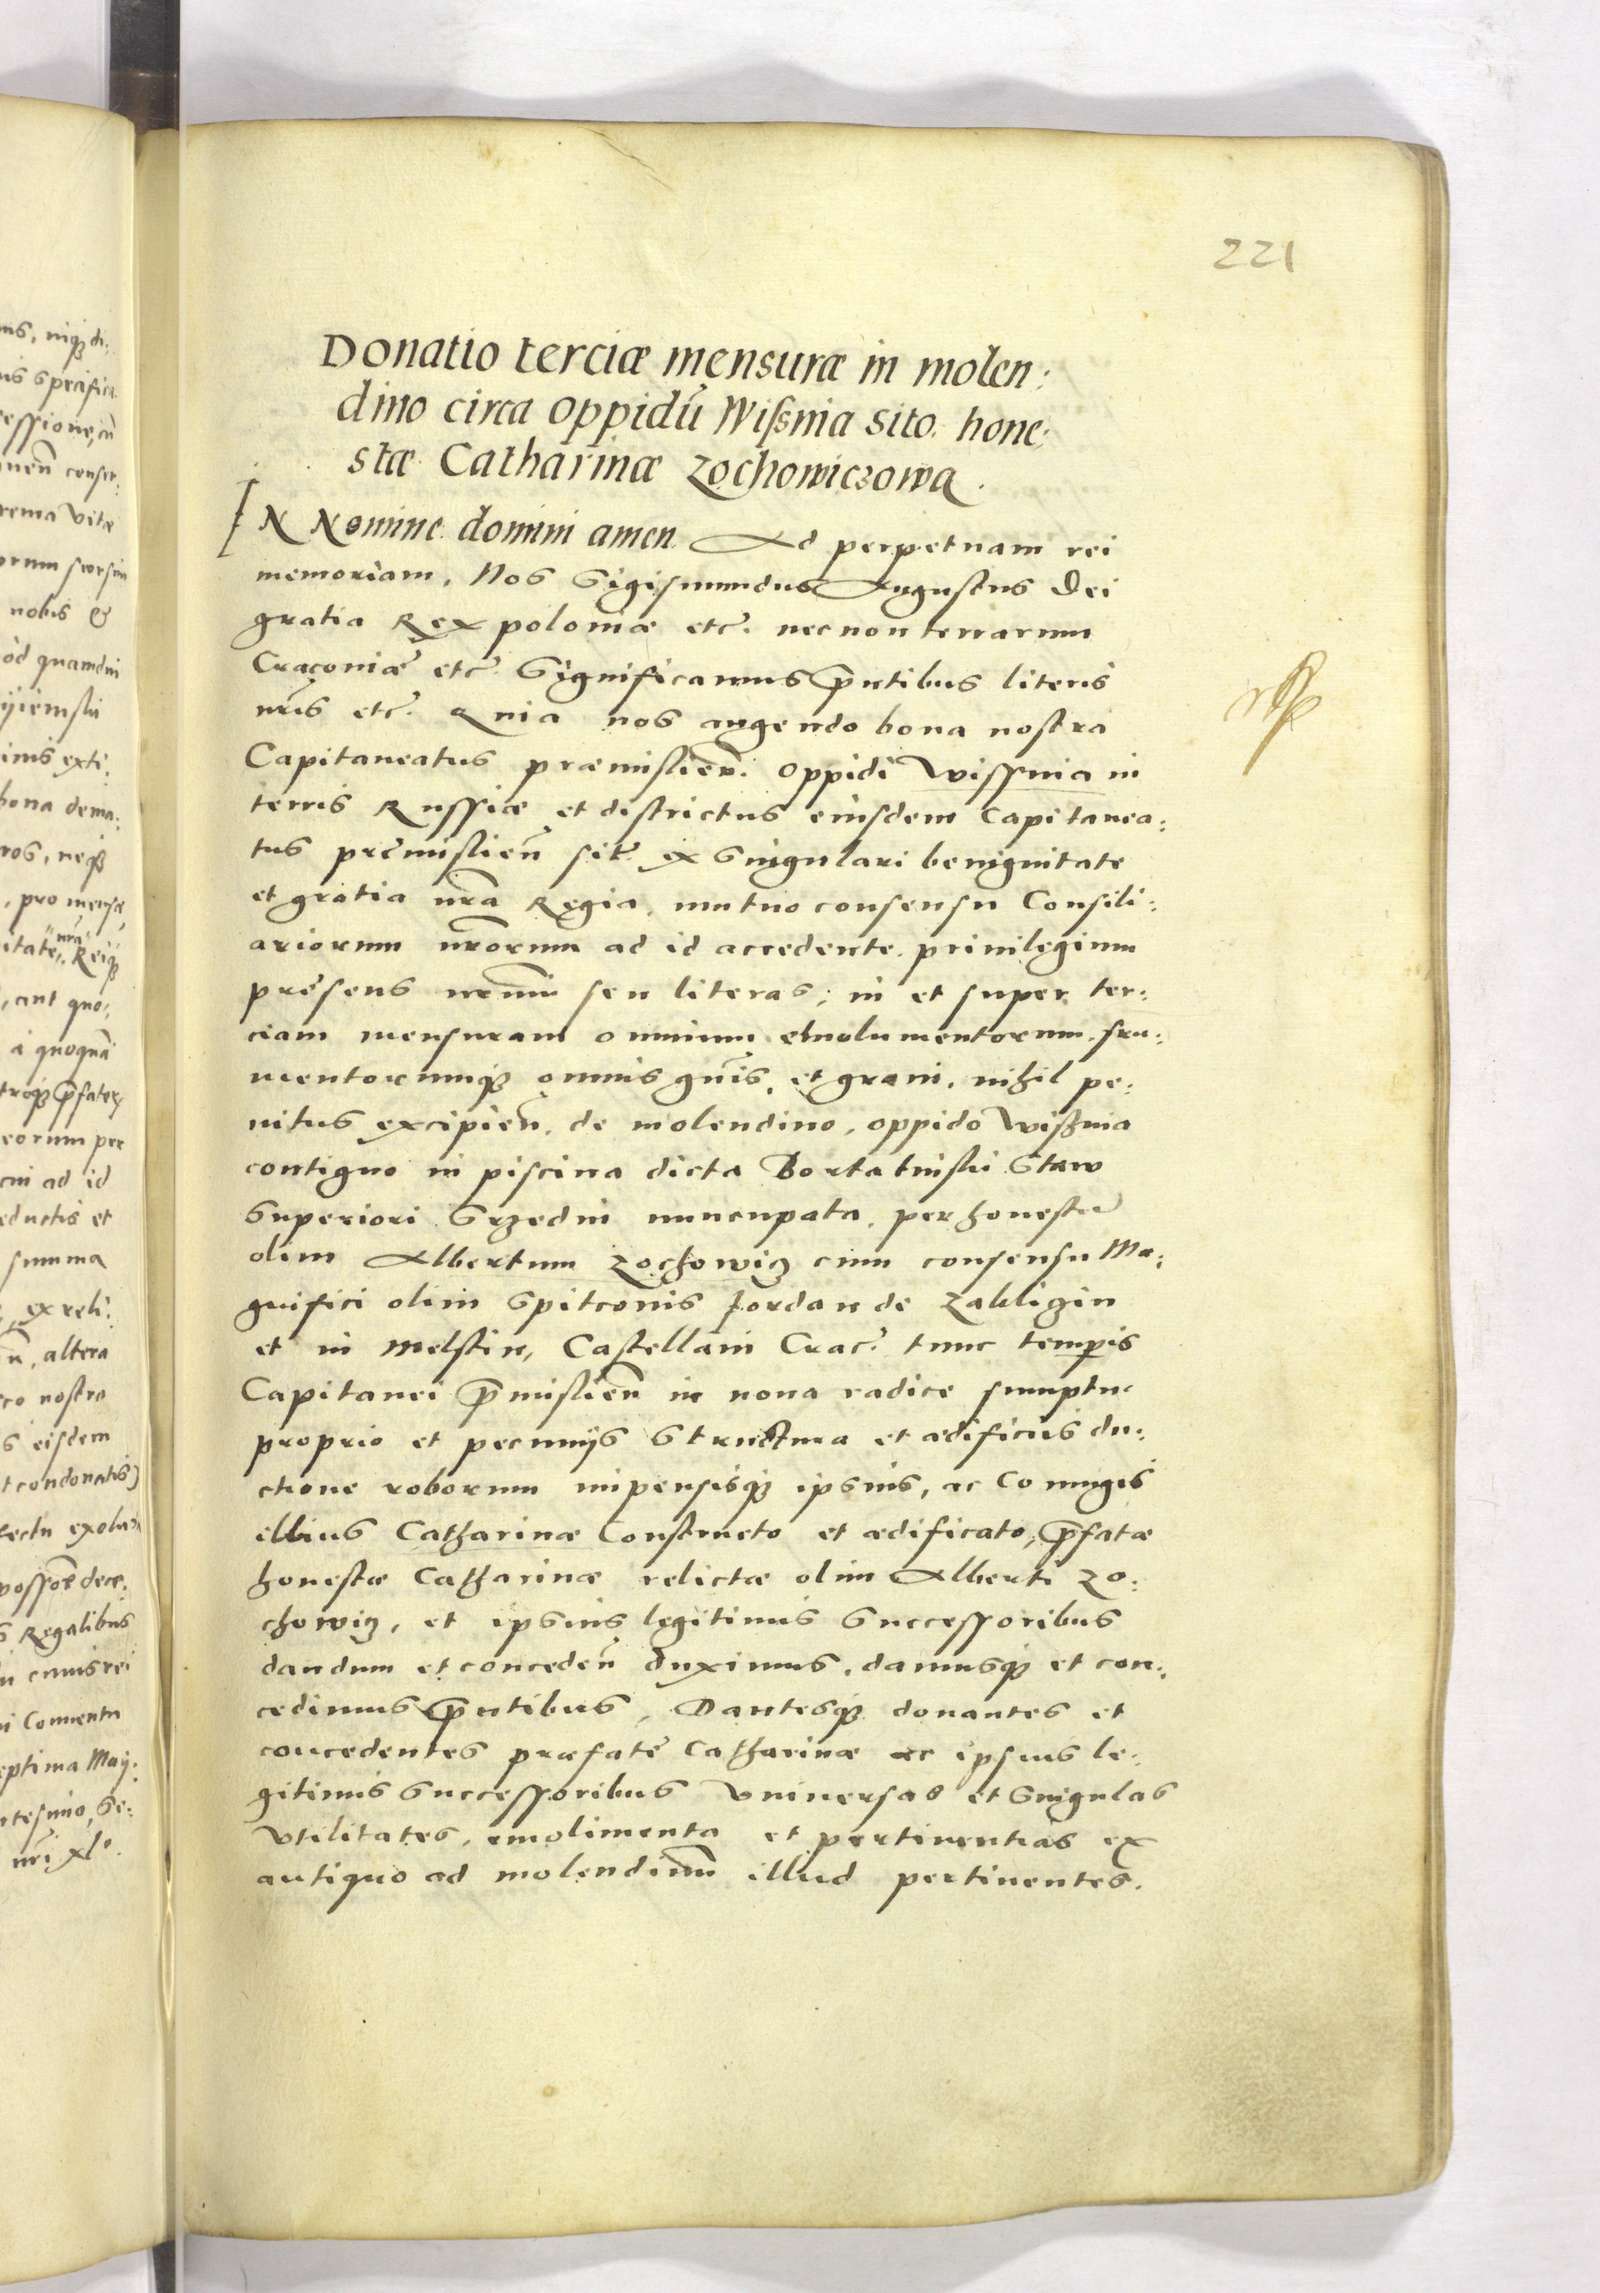 221
Donatio terciæ mensuræ in molen:
dino circa oppidū Wißnia sito. hone:
stæ Catharinæ Zochowiczowa.
IN Nomine domini amen. Ad perpetuam rei
memoriam. Nos Sigismundus Augustus Dei
gratia Rex poloniæ etc. necnon terrarum
Cracoviæ etc. Significamus p̄ntibus literis
nr̄is etc. Quia nos augendo bona nostra
Capitaneatus præmislien̄. oppidi Wissnia in
terris Russiæ et districtus eiusdem Capitanea:
tus prēmislien̄ sit. ex singulari benignitate
et gratia nr̄a Regia, mutuo consensu Consili:
ariorum nr̄orum ad id accedente. privilegium
presens nr̄um seu literas; in et super ter:
ciam mensuram omnium emolumentorum. fru:
mentorumqȝ omnis gn̄is, et grani, nihil pe:
nitus excipien̄. de molendino, oppido Wißnia
contiguo in piscina dicta Bortatinski Staw
superiori Srzedni nuncupata, per honestū
olim Albertum Zochowicz cum consensu Ma:
gnifici olim Spitconis Jordan de Zakliczin
et in Melstin, Castellani Crac. tunc temp̄is
Capitanei p̄mislien̄ in nova radice sumptu
proprio et pecunijs structura et ædificiis du:
ctione roborum impensisqȝ ipsius, ac Coniugis
illius Catharinæ Constructo et ædificato, p̄fatæ
honestæ Catharinæ relictæ olim Alberti Zo:
chowicz, et ipsius legitimis successoribus
dandum et conceden̄ duximus, damusqȝ et con:
cedimus p̄ntibus, Dantesqȝ donantes et
concedentes præfatę Catharinæ ac ipsius le:
gitimis successoribus universas et singulas
utilitates, emolimenta et pertinentias ex
antiquo ad molendinum illud pertinentes.